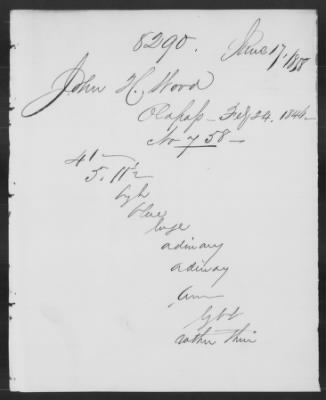 8290. June 17, 1858
John H. Wood
Feby 24. 1846 –
No 758 –
41 –
5. 11½
high
blue
large
ordinary
ordinary
firm
light
rather thin